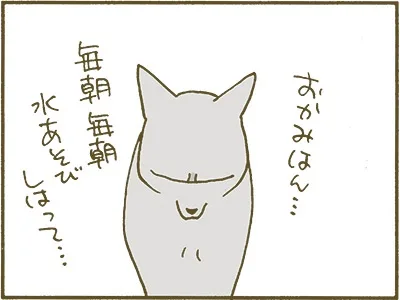 おかみはん…
毎朝毎朝
水あそび
しはって…